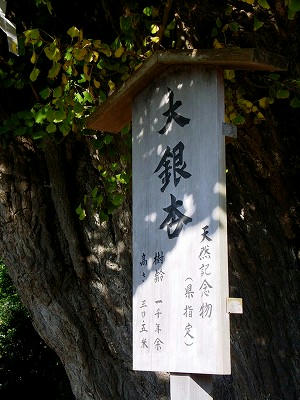 大銀杏
天然記念物
（県指定）
樹齢 一千年余
高さ 三〇・五米